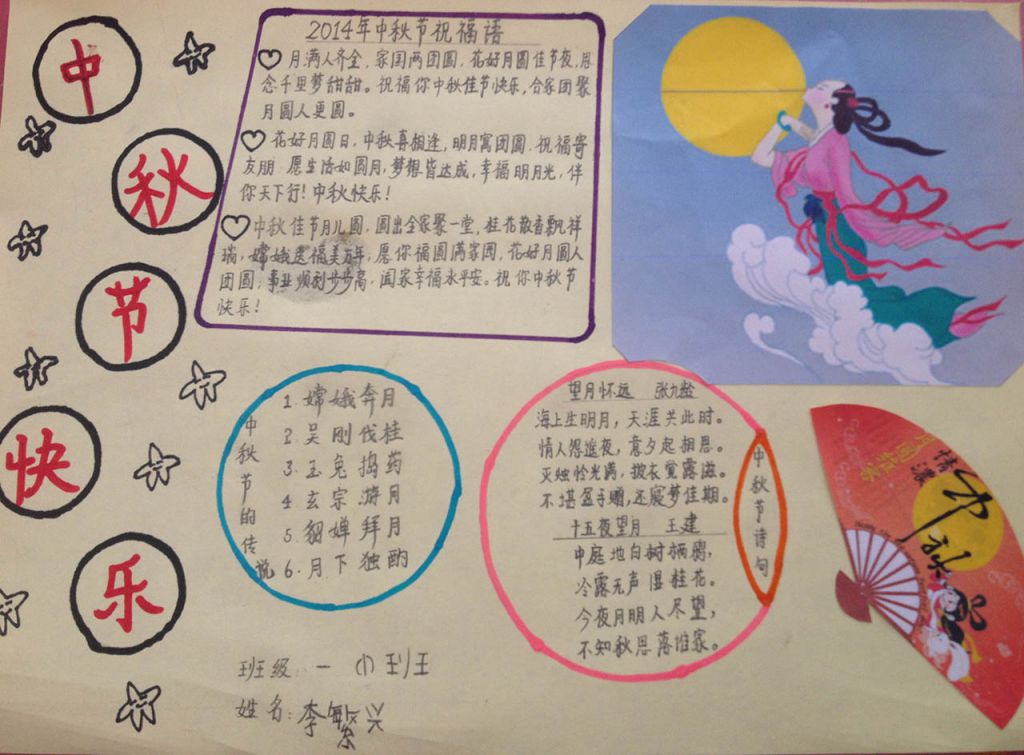 中
秋
节
快
乐
2014年中秋节祝福语
月满人齐全，家国两团圆，花好月圆佳节夜，思
念千里梦甜甜。祝福你中秋佳节快乐，合家团聚
月圆人更圆。
花好月圆日，中秋喜相逢，明月寓团圆，祝福寄
友朋，愿生活如圆月，梦想皆达成，幸福明月光，伴
你天下行！中秋快乐！
中秋佳节月儿圆，圆出全家聚一堂，桂花散香飘祥
瑞，嫦娥送福美万年，愿你福圆满家园，花好月圆人
团圆，事业顺利步步高，阖家幸福永平安。祝你中秋节
快乐！
中秋节的传说
1. 嫦娥奔月
2. 吴刚伐桂
3. 玉兔捣药
4 玄宗游月
5. 貂婵拜月
6. 月下独酌
望月怀远 张九龄
海上生明月，天涯共此时。
情人怨遥夜，竟夕起相思。
灭烛怜光满，披衣觉露滋。
不堪盈手赠，还寝梦佳期。
十五夜望月 王建
中庭地白树栖鸦，
冷露无声湿桂花。
今夜月明人尽望，
不知秋思落谁家。
中秋节诗句
情浓
中秋
班级：一（1）班
姓名：李繁兴